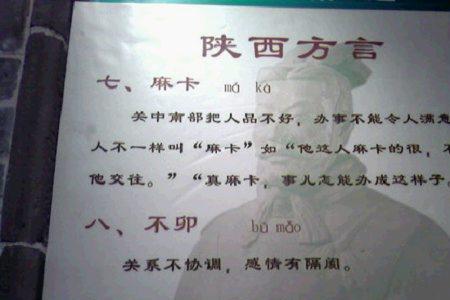 陕西方言
七、麻卡 má kà
关中南部把人品不好，办事不能令人满意
人不一样叫“麻卡”如“他这人麻卡的很，不
他交往。”“真麻卡，事儿怎能办成这样子。
八、不卯 bù mǎo
关系不协调，感情有隔阂。